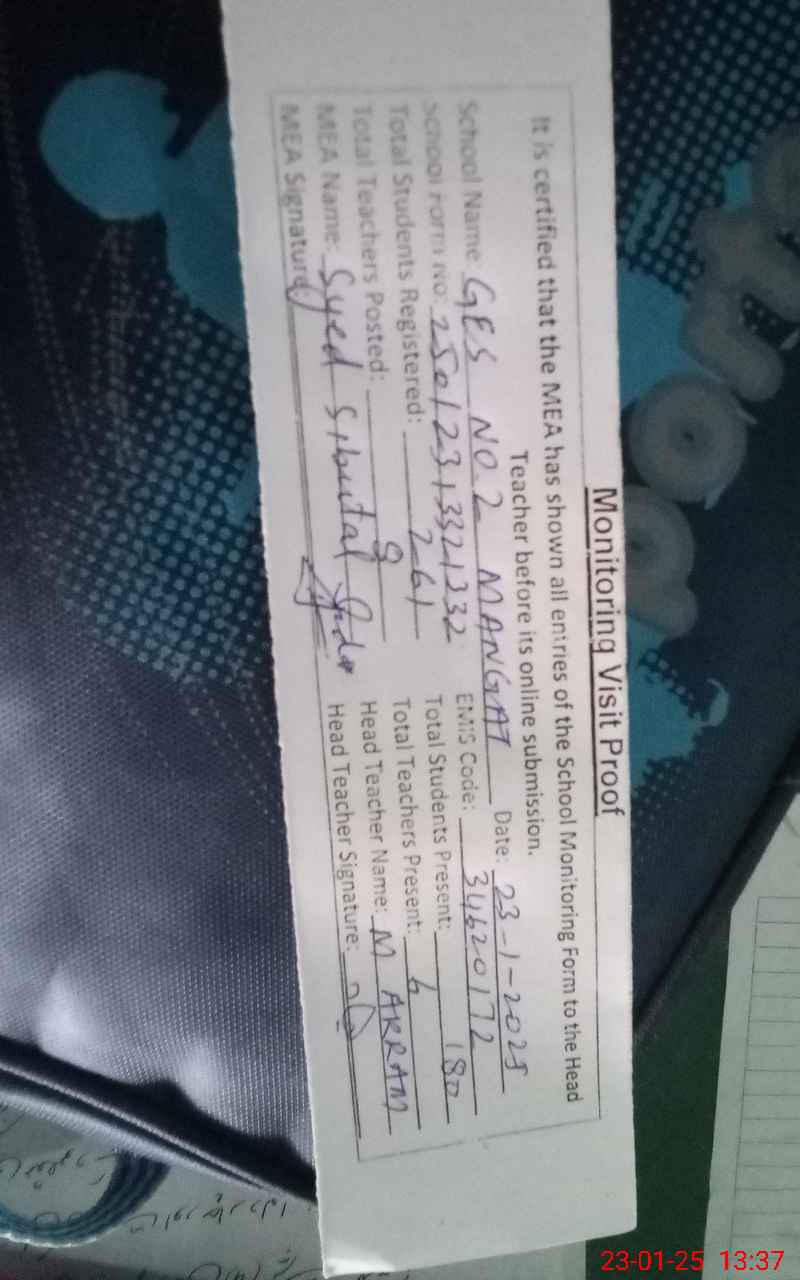 Monitoring Visit Proof
It is certified that the MEA has shown all entries of the School Monitoring Form to the Head
Teacher before its online submission.
School Name: GES NO.2 MANGAT Date: 23-1-2025
School Form No: 25012313321332 EMIS Code: 34620172
Total Students Registered: 261 Total Students Present: 180
Total Teachers Posted: 8 Total Teachers Present: 6
MEA Name: Syed Head Teacher Name: M AKRAM
MEA Signature: Head Teacher Signature:
23-01-25 13:37